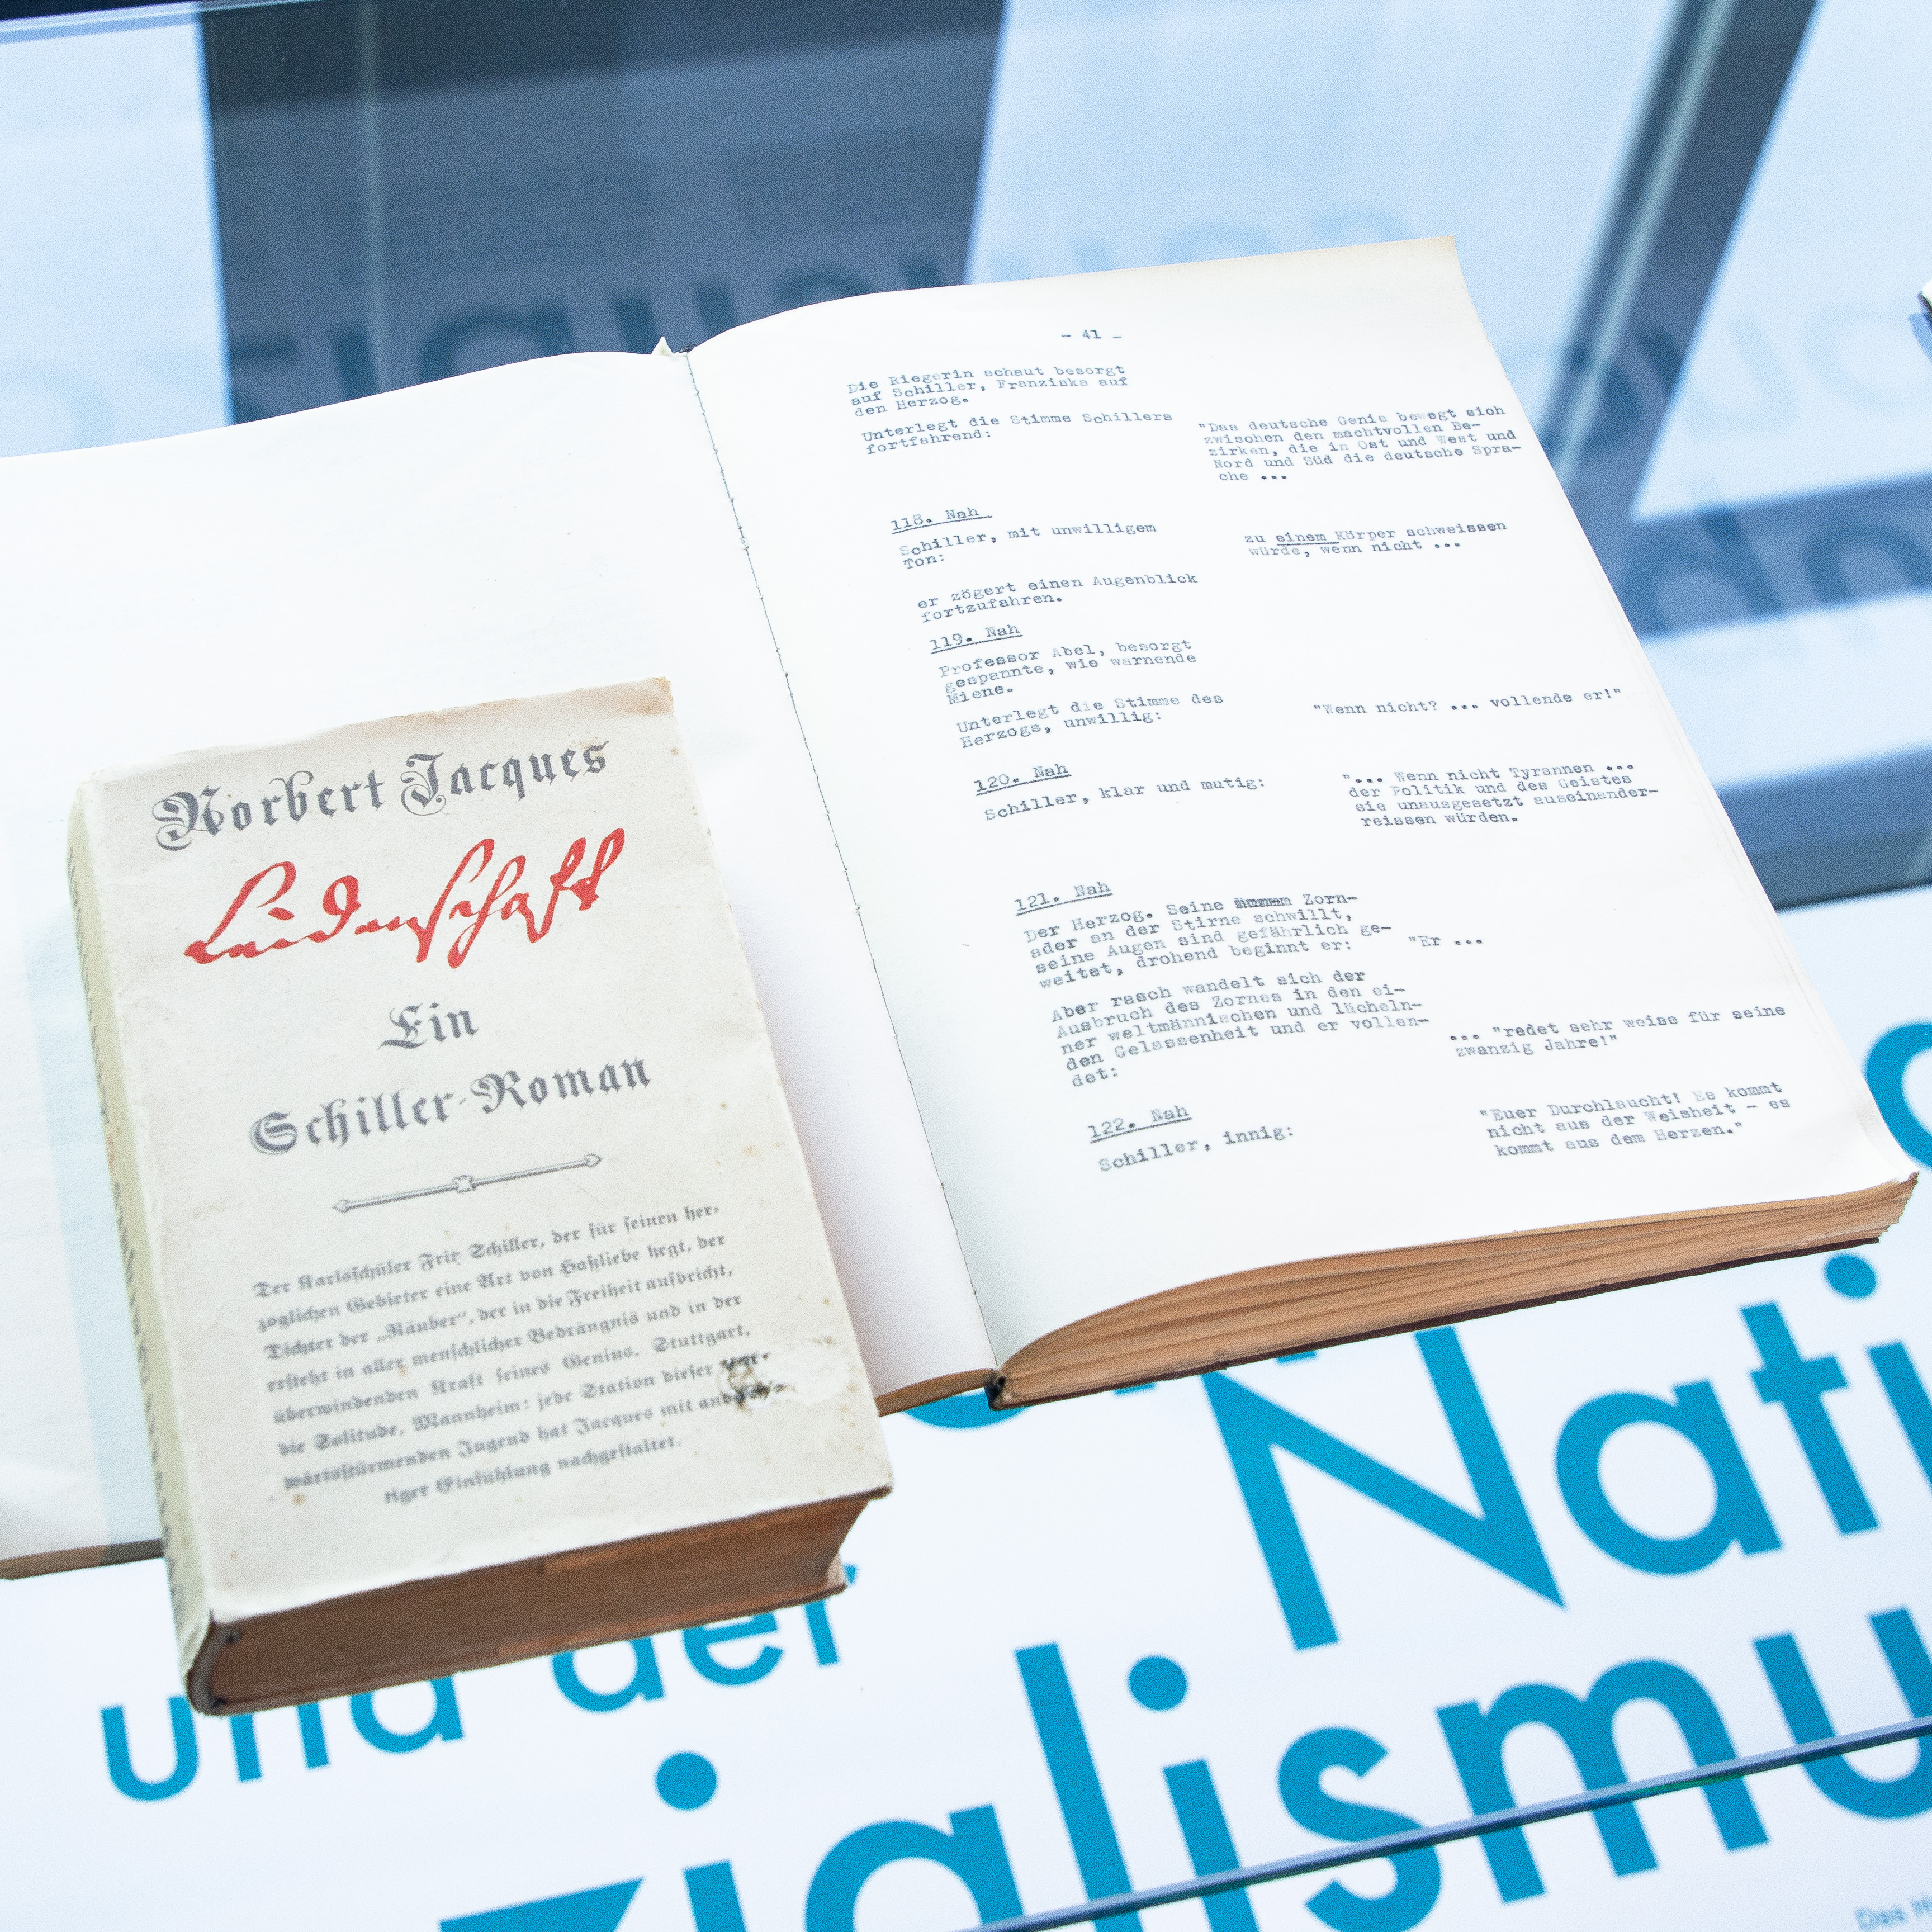 - 41 -
Die Riegerin schaut besorgt
auf Schiller, Franziska auf
den Herzog.
Unterlegt die Stimme Schillers
fortfahrend:
"Das deutsche Genie bewegt sich
zwischen den machtvollen Be-
zirken, die in Ost und West und
Nord und Süd die deutsche Spra-
che ...
118. Nah
Schiller, mit unwilligem
Ton:
zu einem Körper schweissen
würde, wenn nicht ...
er zögert einen Augenblick
fortzufahren.
119. Nah
Professor Abel, besorgt
gespannte, wie warnende
Miene.
Unterlegt die Stimme des
Herzogs, unwillig:
"Wenn nicht? ... vollende er!"
120. Nah
Schiller, klar und mutig:
"... Wenn nicht Tyrannen ...
der Politik und des Geistes
sie unausgesetzt auseinander-
reissen würden.
121. Nah
Der Herzog. Seine Zorn-
ader an der Stirne schwillt,
seine Augen sind gefährlich ge-
weitet, drohend beginnt er:
"Er ...
Aber rasch wandelt sich der
Ausbruch des Zornes in den ei-
ner weltmännischen und lächeln-
den Gelassenheit und er vollen-
det:
... "redet sehr weise für seine
zwanzig Jahre!"
122. Nah
Schiller, innig:
"Euer Durchlaucht! Es kommt
nicht aus der Weisheit - es
kommt aus dem Herzen."
Norbert Jacques
Leidenschaft
Ein
Schiller-Roman
Der Karlsschüler Fritz Schiller, der für seinen her-
zoglichen Gebieter eine Art von Haßliebe hegt, der
Dichter der „Räuber“, der in die Freiheit aufbricht,
ersteht in aller menschlicher Bedrängnis und in der
überwindenden Kraft seines Genius. Stuttgart,
die Solitude, Mannheim: jede Station dieser vor-
wärtsstürmenden Jugend hat Jacques mit
tiger Einfühlung nachgestaltet.
Nati
und der
zialismu